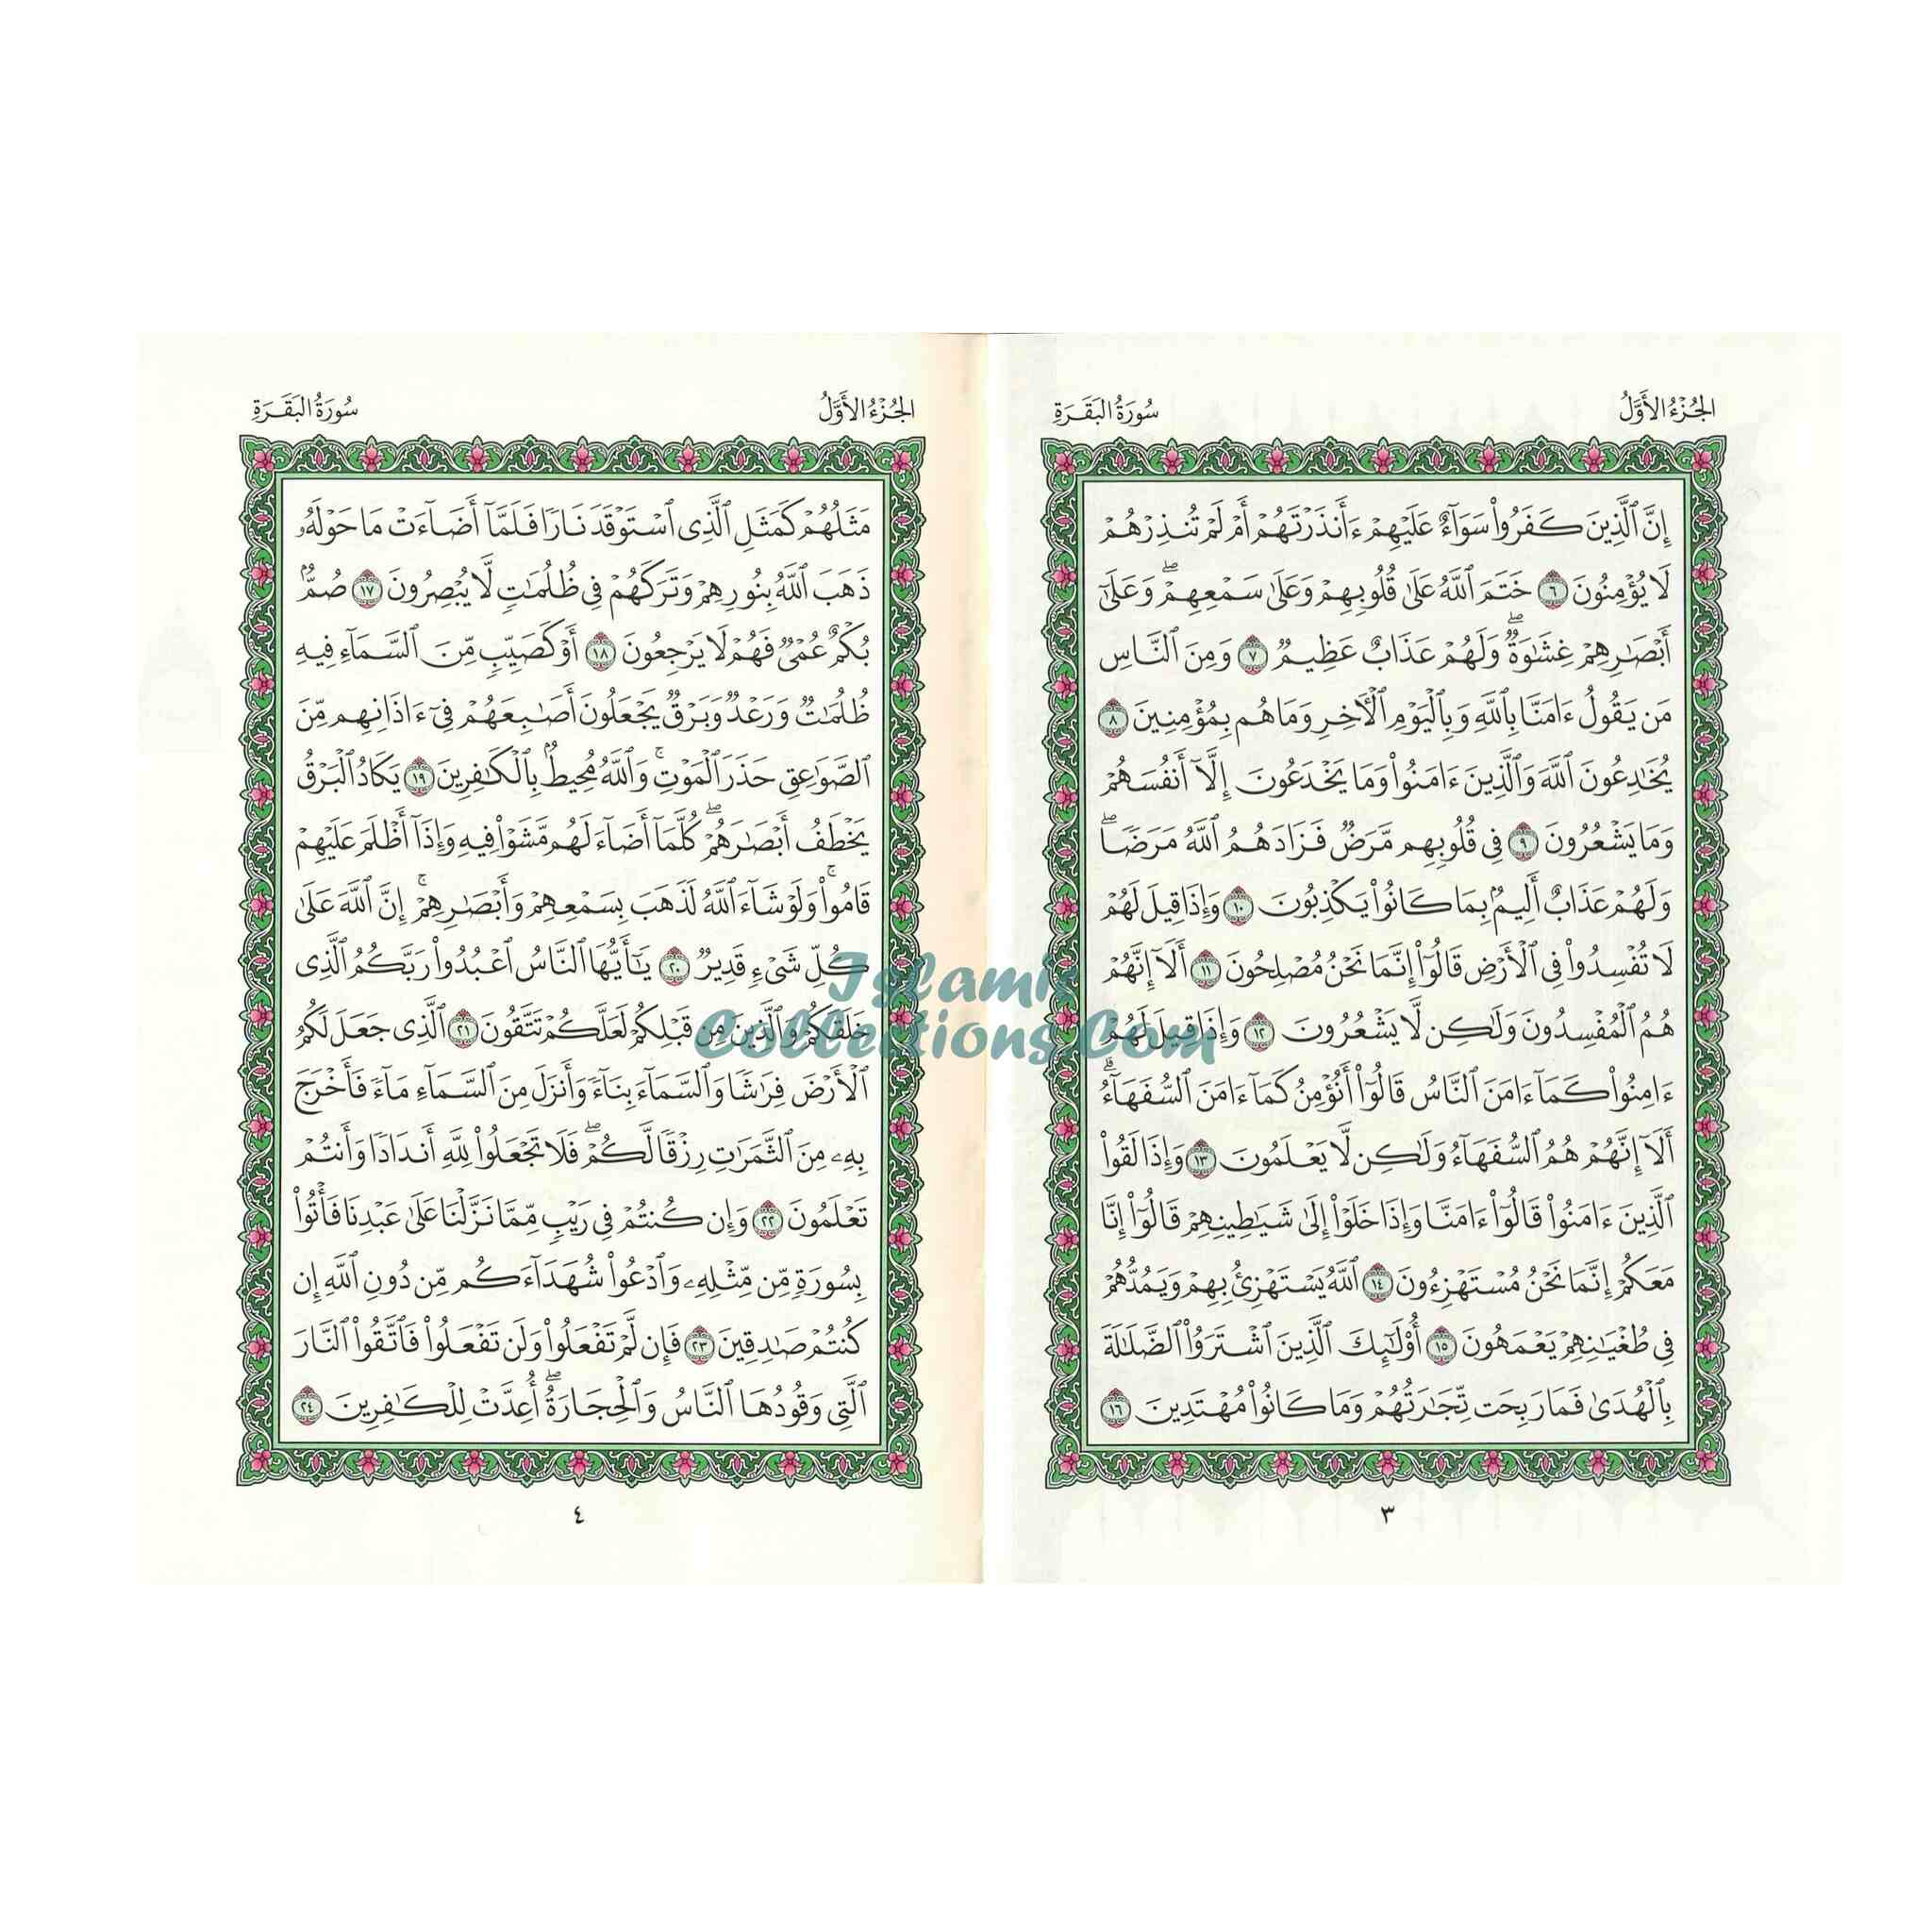 الجُزْءُ الأَوَّلُ
سُورَةُ البَقَرَةِ
إِنَّ ٱلَّذِينَ كَفَرُوا۟ سَوَآءٌ عَلَيْهِمْ ءَأَنذَرْتَهُمْ أَمْ لَمْ تُنذِرْهُمْ
لَا يُؤْمِنُونَ ٦ خَتَمَ ٱللَّهُ عَلَىٰ قُلُوبِهِمْ وَعَلَىٰ سَمْعِهِمْ ۖ وَعَلَىٰٓ
أَبْصَٰرِهِمْ غِشَٰوَةٌ ۖ وَلَهُمْ عَذَابٌ عَظِيمٌ ٧ وَمِنَ ٱلنَّاسِ
مَن يَقُولُ ءَامَنَّا بِٱللَّهِ وَبِٱلْيَوْمِ ٱلْءَاخِرِ وَمَا هُم بِمُؤْمِنِينَ ٨
يُخَٰدِعُونَ ٱللَّهَ وَٱلَّذِينَ ءَامَنُوا۟ وَمَا يَخْدَعُونَ إِلَّآ أَنفُسَهُمْ
وَمَا يَشْعُرُونَ ٩ فِى قُلُوبِهِم مَّرَضٌ فَزَادَهُمُ ٱللَّهُ مَرَضًا ۖ
وَلَهُمْ عَذَابٌ أَلِيمٌۢ بِمَا كَانُوا۟ يَكْذِبُونَ ١٠ وَإِذَا قِيلَ لَهُمْ
لَا تُفْسِدُوا۟ فِى ٱلْأَرْضِ قَالُوٓا۟ إِنَّمَا نَحْنُ مُصْلِحُونَ ١١ أَلَآ إِنَّهُمْ
هُمُ ٱلْمُفْسِدُونَ وَلَٰكِن لَّا يَشْعُرُونَ ١٢ وَإِذَا قِيلَ لَهُمْ
ءَامِنُوا۟ كَمَآ ءَامَنَ ٱلنَّاسُ قَالُوٓا۟ أَنُؤْمِنُ كَمَآ ءَامَنَ ٱلسُّفَهَآءُ ۗ
أَلَآ إِنَّهُمْ هُمُ ٱلسُّفَهَآءُ وَلَٰكِن لَّا يَعْلَمُونَ ١٣ وَإِذَا لَقُوا۟
ٱلَّذِينَ ءَامَنُوا۟ قَالُوٓا۟ ءَامَنَّا وَإِذَا خَلَوْا۟ إِلَىٰ شَيَٰطِينِهِمْ قَالُوٓا۟ إِنَّا
مَعَكُمْ إِنَّمَا نَحْنُ مُسْتَهْزِءُونَ ١٤ ٱللَّهُ يَسْتَهْزِئُ بِهِمْ وَيَمُدُّهُمْ
فِى طُغْيَٰنِهِمْ يَعْمَهُونَ ١٥ أُو۟لَٰٓئِكَ ٱلَّذِينَ ٱشْتَرَوُا۟ ٱلضَّلَٰلَةَ
بِٱلْهُدَىٰ فَمَا رَبِحَت تِّجَٰرَتُهُمْ وَمَا كَانُوا۟ مُهْتَدِينَ ١٦
٣
الجُزْءُ الأَوَّلُ
سُورَةُ البَقَرَةِ
مَثَلُهُمْ كَمَثَلِ ٱلَّذِى ٱسْتَوْقَدَ نَارًا فَلَمَّآ أَضَآءَتْ مَا حَوْلَهُۥ
ذَهَبَ ٱللَّهُ بِنُورِهِمْ وَتَرَكَهُمْ فِى ظُلُمَٰتٍ لَّا يُبْصِرُونَ ١٧ صُمٌّۢ
بُكْمٌ عُمْىٌ فَهُمْ لَا يَرْجِعُونَ ١٨ أَوْ كَصَيِّبٍ مِّنَ ٱلسَّمَآءِ فِيهِ
ظُلُمَٰتٌ وَرَعْدٌ وَبَرْقٌ يَجْعَلُونَ أَصَٰبِعَهُمْ فِىٓ ءَاذَانِهِم مِّنَ
ٱلصَّوَٰعِقِ حَذَرَ ٱلْمَوْتِ ۚ وَٱللَّهُ مُحِيطٌۢ بِٱلْكَٰفِرِينَ ١٩ يَكَادُ ٱلْبَرْقُ
يَخْطَفُ أَبْصَٰرَهُمْ ۖ كُلَّمَآ أَضَآءَ لَهُم مَّشَوْا۟ فِيهِ وَإِذَآ أَظْلَمَ عَلَيْهِمْ
قَامُوا۟ ۚ وَلَوْ شَآءَ ٱللَّهُ لَذَهَبَ بِسَمْعِهِمْ وَأَبْصَٰرِهِمْ ۚ إِنَّ ٱللَّهَ عَلَىٰ
كُلِّ شَىْءٍ قَدِيرٌ ٢٠ يَٰٓأَيُّهَا ٱلنَّاسُ ٱعْبُدُوا۟ رَبَّكُمُ ٱلَّذِى
خَلَقَكُمْ وَٱلَّذِينَ مِن قَبْلِكُمْ لَعَلَّكُمْ تَتَّقُونَ ٢١ ٱلَّذِى جَعَلَ لَكُمُ
ٱلْأَرْضَ فِرَٰشًا وَٱلسَّمَآءَ بِنَآءً وَأَنزَلَ مِنَ ٱلسَّمَآءِ مَآءً فَأَخْرَجَ
بِهِۦ مِنَ ٱلثَّمَرَٰتِ رِزْقًا لَّكُمْ ۖ فَلَا تَجْعَلُوا۟ لِلَّهِ أَندَادًا وَأَنتُمْ
تَعْلَمُونَ ٢٢ وَإِن كُنتُمْ فِى رَيْبٍ مِّمَّا نَزَّلْنَا عَلَىٰ عَبْدِنَا فَأْتُوا۟
بِسُورَةٍ مِّن مِّثْلِهِۦ وَٱدْعُوا۟ شُهَدَآءَكُم مِّن دُونِ ٱللَّهِ إِن
كُنتُمْ صَٰدِقِينَ ٢٣ فَإِن لَّمْ تَفْعَلُوا۟ وَلَن تَفْعَلُوا۟ فَٱتَّقُوا۟ ٱلنَّارَ
ٱلَّتِى وَقُودُهَا ٱلنَّاسُ وَٱلْحِجَارَةُ ۖ أُعِدَّتْ لِلْكَٰفِرِينَ ٢٤
٤
Islamic
Collections.Com